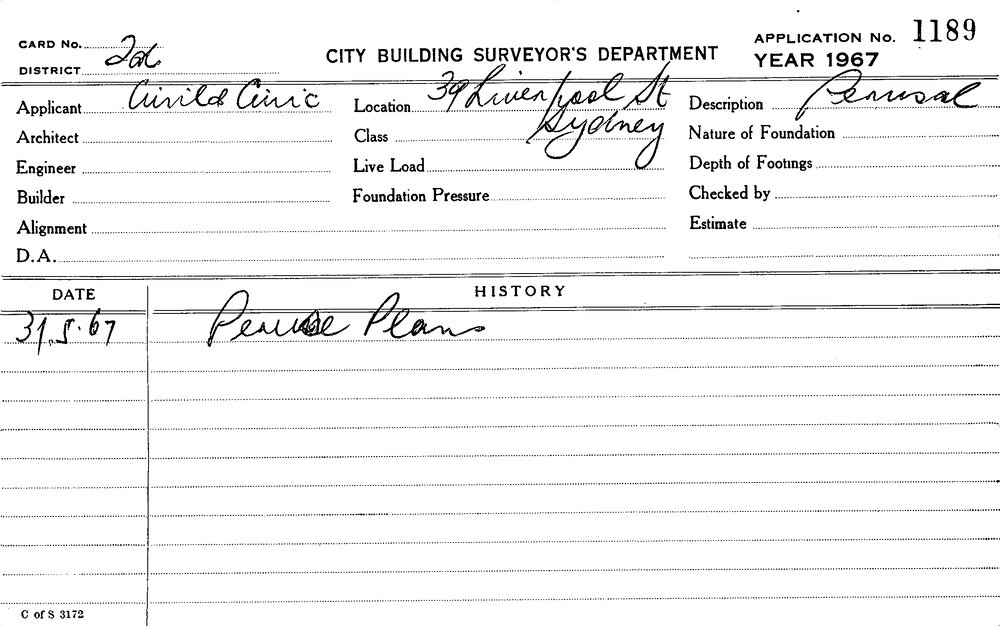 CARD No.
DISTRICT
CITY BUILDING SURVEYOR'S DEPARTMENT
APPLICATION No. 1189
YEAR 1967
Applicant Civil & Civic
Location 39 Liverpool St
Sydney
Description Perusal
Architect
Class
Nature of Foundation
Engineer
Live Load
Depth of Footings
Builder
Foundation Pressure
Checked by
Alignment
Estimate
D.A.
DATE
HISTORY
31.5.67 Peruse Plans
C of S 3172